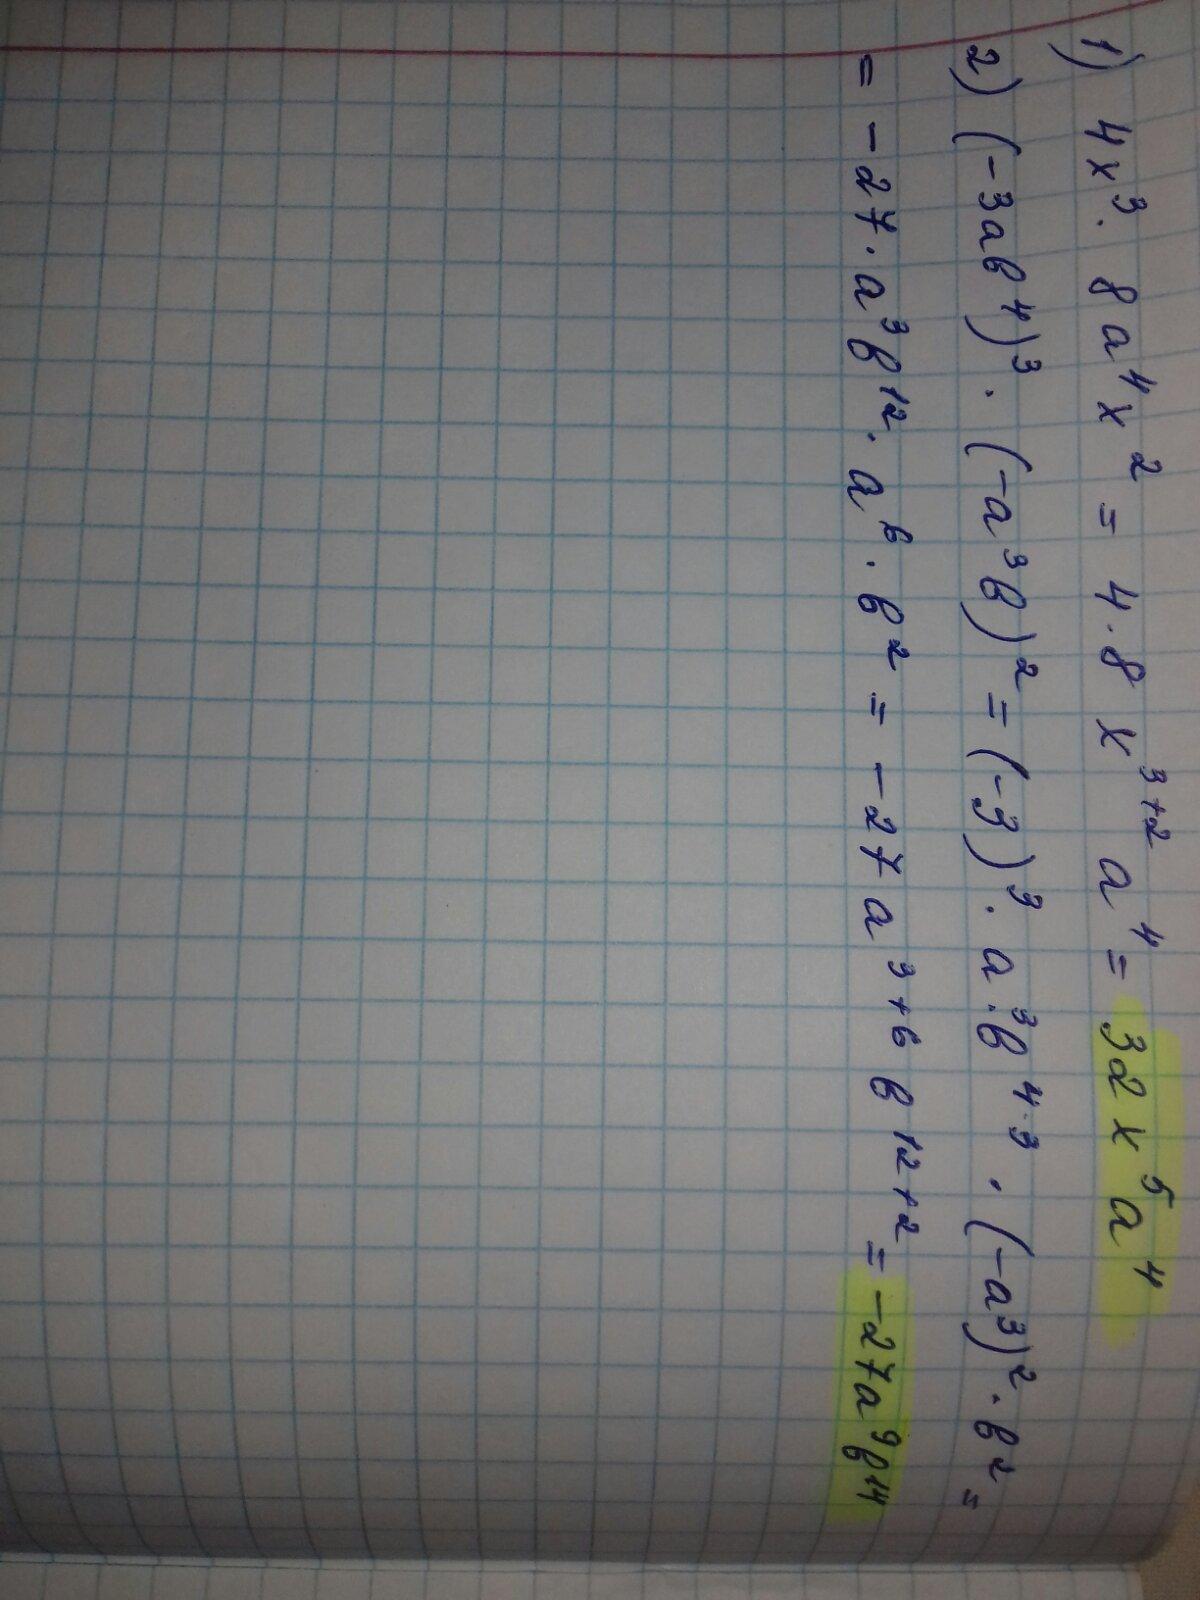 1) 4x³· 8a⁴x² = 4·8 x³⁺² a⁴ = 32x⁵a⁴
2) (-3aв⁴)³ · (-a³в)² = (-3)³ · a³·в⁴·³ · (-a³)² · в² =
= -27·a³в¹²· a⁶· в² = -27a³⁺⁶ в¹²⁺² = -27a⁹в¹⁴